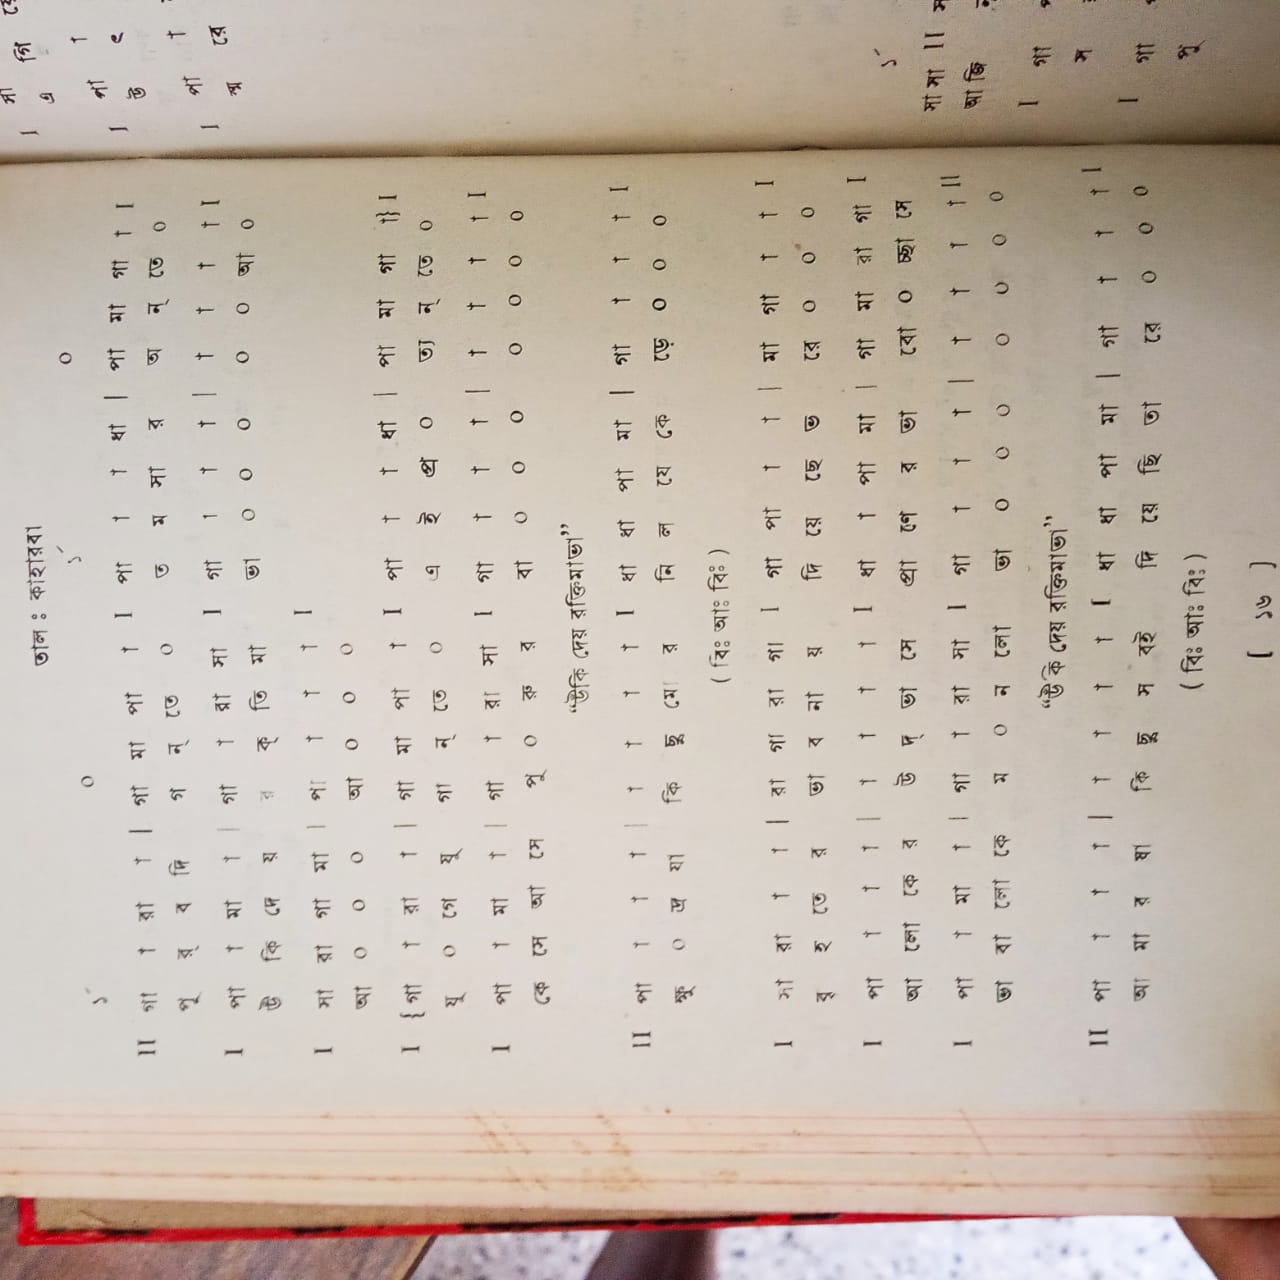 তাল : কাহারবা
১´ ০ ১´ ০
II গা া রা া | গা মা পা া I পা া া ধা | পা মা গা া I
পূ র্ ব দি গ ন্ তে ০ ত ম সা র অ ন্ তে ০
I পা া মা া | গা া রা সা I গা া া া | া া া া I
উ কি দে য় র ক্ তি মা ভা ০ ০ ০ ০ ০ আ ০
I সা রা গা মা | পা া া া I
আ ০ ০ ০ আ ০ ০ ০
I {গা া রা া | গা মা পা া I পা া া ধা | পা মা গা া} I
যু ০ গে যু গা ন্ তে ০ এ ই প্র ০ ত্য ন্ তে ০
I পা া মা া | গা া রা সা I গা া া া | া া া া I
কে সে আ সে পূ ০ রু র বা ০ ০ ০ ০ ০ ০ ০
“উকি দেয় রক্তিমাভা”
II পা া া া | া া া া I ধা ধা পা মা | গা া া া I
ক্ষু ০ দ্র যা কি ছু মো র নি ল যে কে ড়ে ০ ০ ০
( বিঃ আঃ বিঃ )
I সা রা া া | রা গা রা গা I গা পা া া | মা গা া া I
বৃ হ তে র ভা ব না য় দি য়ে ছে ভ রে ০ ০ ০
I পা া া া | া া া া I ধা া পা মা | গা মা রা গা I
আ লো কে র উ দ্ ভা সে প্রা ণে র ভা বো ০ চ্ছা সে
I পা া মা া | গা া রা সা I গা া া া | া া া া II
ভা বা লো কে ম ০ ন লো ভা ০ ০ ০ ০ ০ ০ ০
“উকি দেয় রক্তিমাভা”
II পা া া া | া া া া I ধা ধা পা মা | গা া া া I
আ মা র যা কি ছু স বই দি য়ে ছি তা রে ০ ০ ০
( বিঃ আঃ বিঃ )
[ ১৬ ]